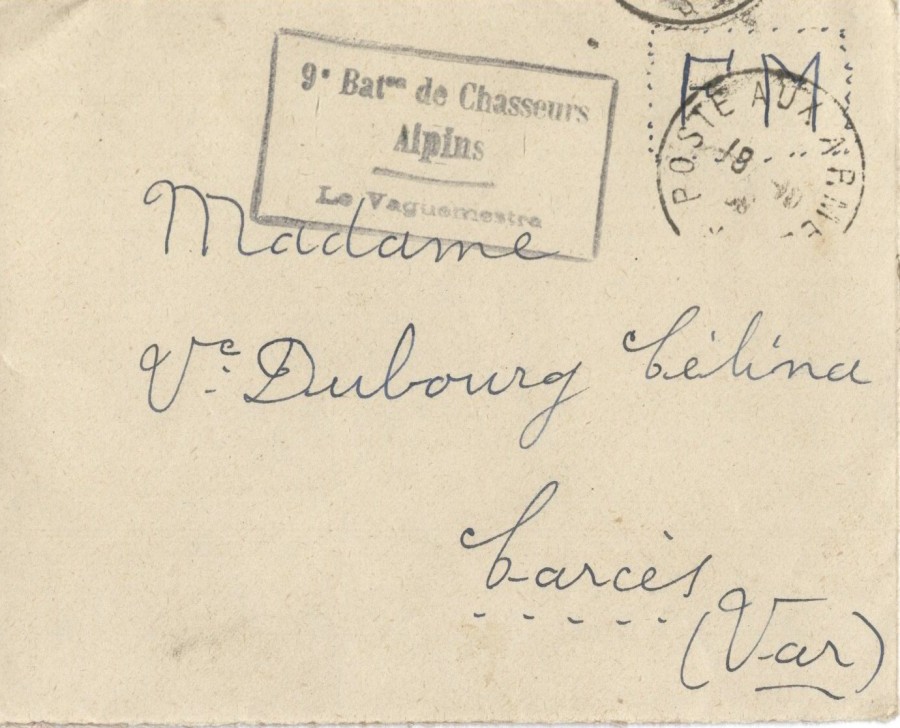 9e Baton de Chasseurs
Alpins
Le Vaguemestre
FM
POSTE AUX ARMEES
18
40
Madame
Vce: Dubourg Célina
Carcès
(Var)